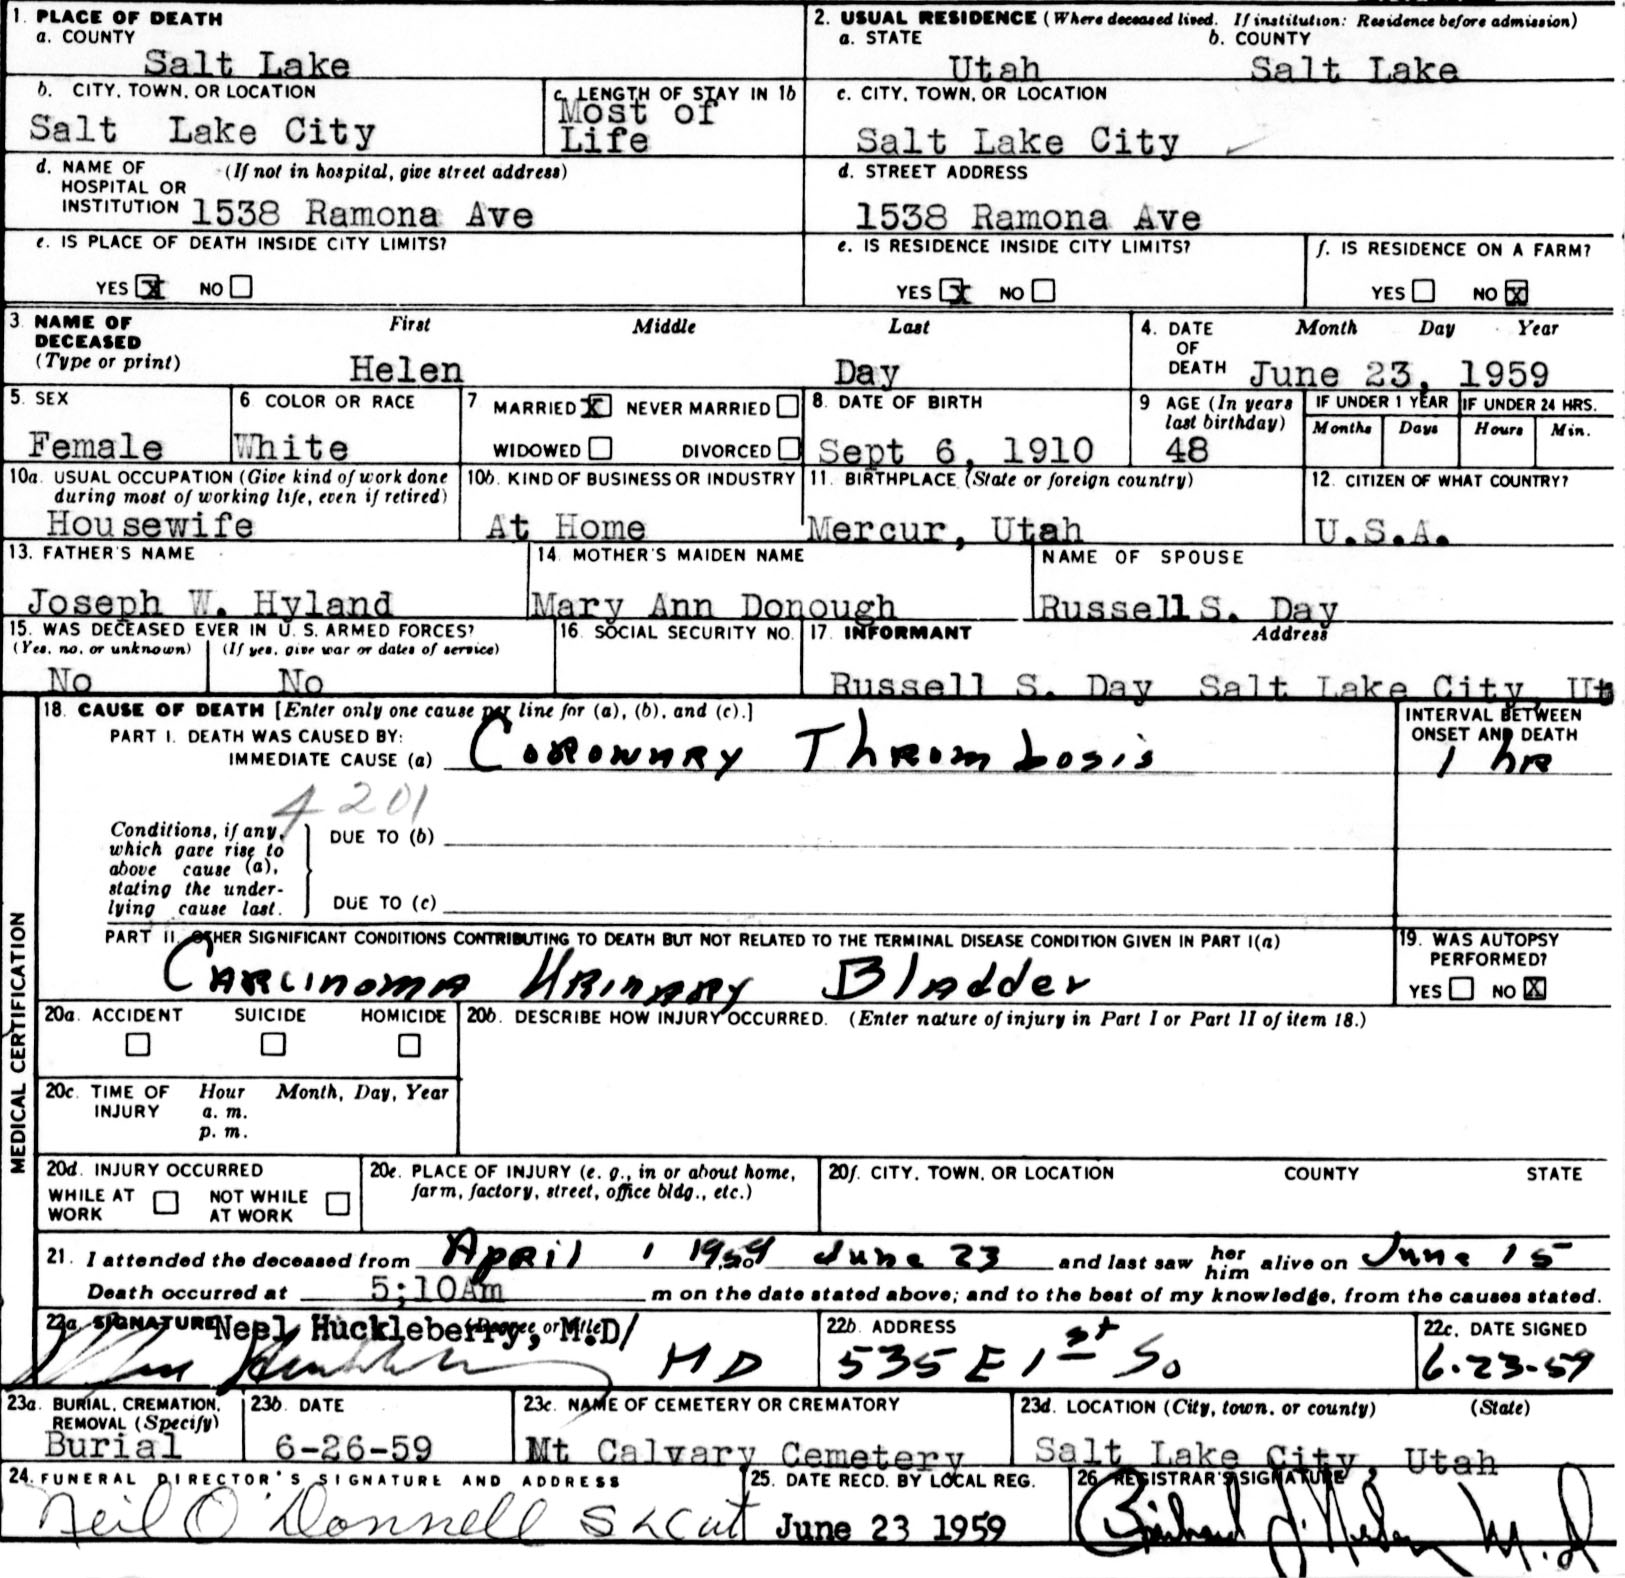 1. PLACE OF DEATH
a. COUNTY
Salt Lake
2. USUAL RESIDENCE (Where deceased lived. If institution: Residence before admission)
a. STATE b. COUNTY
Utah Salt Lake
b. CITY, TOWN, OR LOCATION
Salt Lake City
c. LENGTH OF STAY IN 1b
Most of
Life
c. CITY, TOWN, OR LOCATION
Salt Lake City
d. NAME OF (If not in hospital, give street address)
HOSPITAL OR
INSTITUTION 1538 Ramona Ave
d. STREET ADDRESS
1538 Ramona Ave
e. IS PLACE OF DEATH INSIDE CITY LIMITS?
YES X NO
e. IS RESIDENCE INSIDE CITY LIMITS?
YES X NO
f. IS RESIDENCE ON A FARM?
YES NO X
3. NAME OF First Middle Last
DECEASED
(Type or print) Helen Day
4. DATE Month Day Year
OF
DEATH June 23, 1959
5. SEX
Female
6 COLOR OR RACE
White
7 MARRIED X NEVER MARRIED
WIDOWED DIVORCED
8. DATE OF BIRTH
Sept 6, 1910
9 AGE (In years
last birthday)
48
IF UNDER 1 YEAR IF UNDER 24 HRS.
Months Days Hours Min.
10a. USUAL OCCUPATION (Give kind of work done
during most of working life, even if retired)
Housewife
10b. KIND OF BUSINESS OR INDUSTRY
At Home
11. BIRTHPLACE (State or foreign country)
Mercur, Utah
12. CITIZEN OF WHAT COUNTRY?
U.S.A.
13. FATHER'S NAME
Joseph W. Hyland
14. MOTHER'S MAIDEN NAME
Mary Ann Donough
NAME OF SPOUSE
Russell S. Day
15. WAS DECEASED EVER IN U. S. ARMED FORCES?
(Yes, no, or unknown) (If yes, give war or dates of service)
No No
16. SOCIAL SECURITY NO.
17. INFORMANT Address
Russell S. Day Salt Lake City, Ut
MEDICAL CERTIFICATION
18. CAUSE OF DEATH [Enter only one cause per line for (a), (b), and (c).]
PART I. DEATH WAS CAUSED BY:
IMMEDIATE CAUSE (a) Coronary Thrombosis
INTERVAL BETWEEN
ONSET AND DEATH
1 hr
4201
Conditions, if any,
which gave rise to
above cause (a),
stating the under-
lying cause last.
DUE TO (b)
DUE TO (c)
PART II. OTHER SIGNIFICANT CONDITIONS CONTRIBUTING TO DEATH BUT NOT RELATED TO THE TERMINAL DISEASE CONDITION GIVEN IN PART I(a)
Carcinoma Urinary Bladder
19. WAS AUTOPSY
PERFORMED?
YES NO X
20a. ACCIDENT SUICIDE HOMICIDE
20b. DESCRIBE HOW INJURY OCCURRED. (Enter nature of injury in Part I or Part II of item 18.)
20c. TIME OF Hour Month, Day, Year
INJURY a. m.
p. m.
20d. INJURY OCCURRED
WHILE AT NOT WHILE
WORK AT WORK
20e. PLACE OF INJURY (e. g., in or about home,
farm, factory, street, office bldg., etc.)
20f. CITY, TOWN, OR LOCATION COUNTY STATE
21. I attended the deceased from April 1959 June 23 and last saw her him alive on June 15
Death occurred at 5;10Am m on the date stated above; and to the best of my knowledge, from the causes stated.
22a. SIGNATURE Neel Huckleberry, M.D/
M D
22b. ADDRESS
535 E 1st So
22c. DATE SIGNED
6-23-59
23a. BURIAL, CREMATION,
REMOVAL (Specify)
Burial
23b. DATE
6-26-59
23c. NAME OF CEMETERY OR CREMATORY
Mt Calvary Cemetery
23d. LOCATION (City, town, or county) (State)
Salt Lake City, Utah
24. FUNERAL DIRECTOR'S SIGNATURE AND ADDRESS
Neil O'Donnell
25. DATE RECD. BY LOCAL REG.
June 23 1959
26. REGISTRAR'S SIGNATURE
M.D